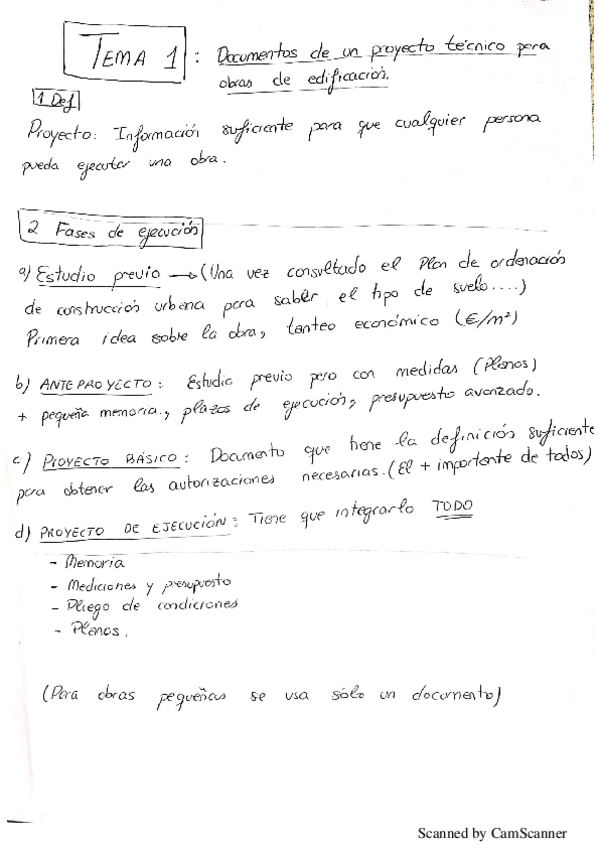 TEMA 1 : Documentos de un proyecto técnico para
obras de edificación.
1 Def
Proyecto: Información suficiente para que cualquier persona
pueda ejecutar una obra.
2 Fases de ejecución
a) Estudio previo → (Una vez consultado el Plan de ordenación
de construcción urbana para saber el tipo de suelo....)
Primera idea sobre la obra, tanteo económico (€/m²)
b) ANTEPROYECTO : Estudio previo pero con medidas (Planos)
+ pequeña memoria, plazos de ejecución, presupuesto avanzado.
c) PROYECTO BÁSICO : Documento que tiene la definición suficiente
para obtener las autorizaciones necesarias. (El + importante de todos)
d) PROYECTO DE EJECUCIÓN : Tiene que integrarlo TODO
- Memoria
- Mediciones y presupuesto
- Pliego de condiciones
- Planos.
(Para obras pequeñas se usa sólo un documento)
Scanned by CamScanner